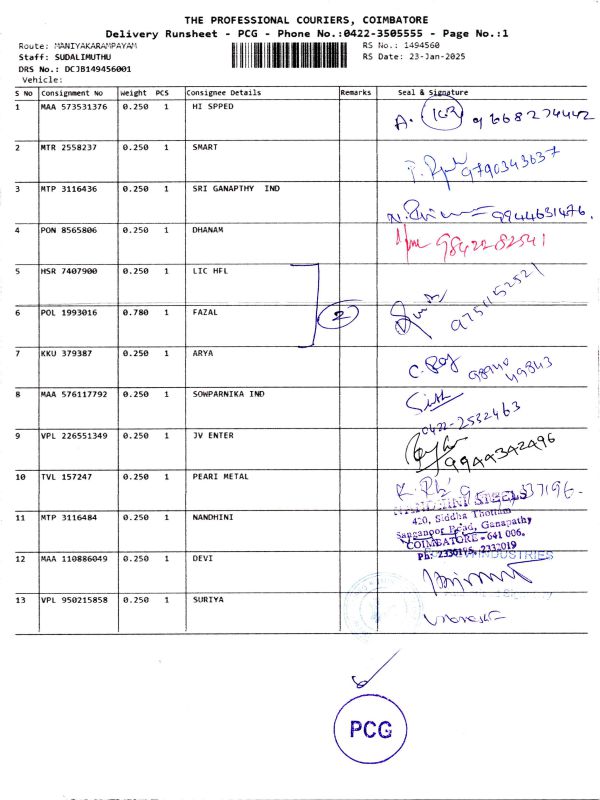 THE PROFESSIONAL COURIERS, COIMBATORE
Delivery Runsheet - PCG - Phone No.:0422-3505555 - Page No.:1
Route: MANIYAKARAMPAYAM RS No.: 1494560
Staff: SUDALIMUTHU RS Date: 23-Jan-2025
DRS No.: DCJB149456001
Vehicle:
S No Consignment No Weight PCS Consignee Details Remarks Seal & Signature
1 MAA 573531376 0.250 1 HI SPPED A. 9668274442
2 MTR 2558237 0.250 1 SMART 9790343637
3 MTP 3116436 0.250 1 SRI GANAPTHY IND 9944631476.
4 PON 8565806 0.250 1 DHANAM 9842282541
5 HSR 7407900 0.250 1 LIC HFL
6 POL 1993016 0.780 1 FAZAL 2 9751152521
7 KKU 379387 0.250 1 ARYA
8 MAA 576117792 0.250 1 SOWPARNIKA IND 0422-2532463
9 VPL 226551349 0.250 1 JV ENTER 9944342496
10 TVL 157247 0.250 1 PEARI METAL
NANDHINI STEELS
11 MTP 3116484 0.250 1 NANDHINI 420, Siddha Thottam
Sanganoor Road, Ganapathy
COIMBATORE - 641 006.
Ph: 2330195, 2332019
12 MAA 110886049 0.250 1 DEVI INDUSTRIES
13 VPL 950215858 0.250 1 SURIYA
PCG